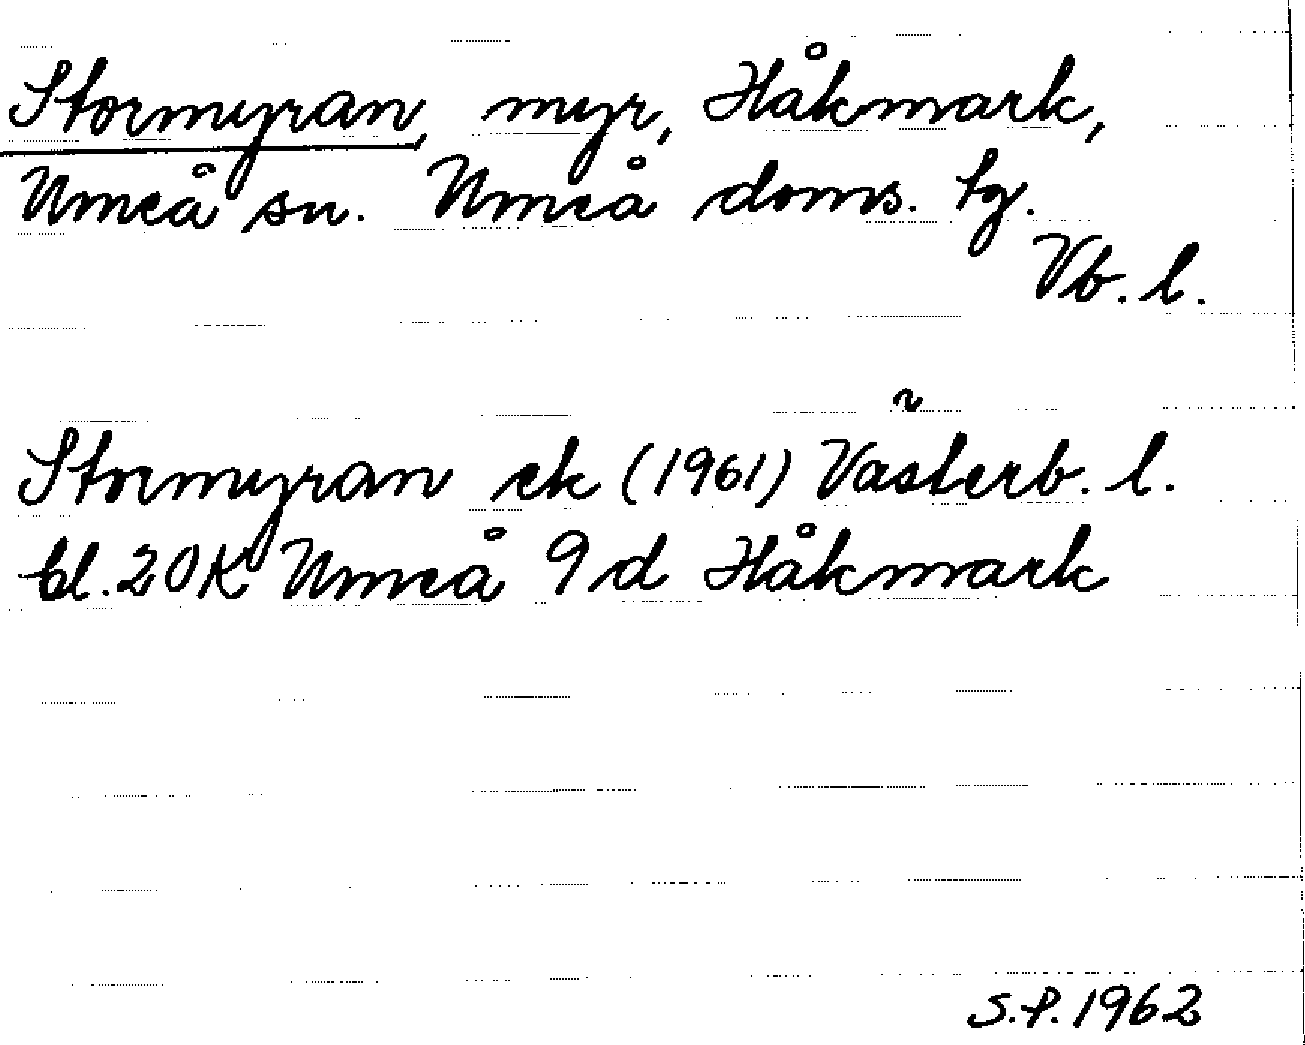 Stormyran, myr, Håkmark,
Umeå sn. Umeå doms. tg.
Vb. l.
Stormyran ek (1961) Västerb. l.
bl. 20K Umeå 9d Håkmark
S.P. 1962